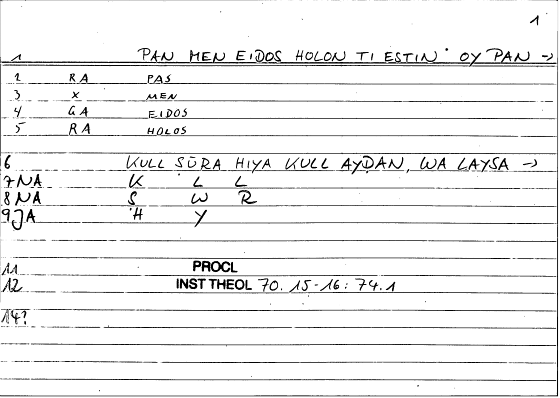 1
1 PAN MEN EIDOS HOLON TI ESTIN· OY PAN →
2 RA PAS
3 X MEN
4 GA EIDOS
5 RA HOLOS
6 KULL SŪRA HIYA KULL AYḌAN, WA LAYSA →
7 NA K L L
8 NA S W R
9 JA H Y
11 PROCL
12 INST THEOL 70. 15-16: 74.1
14?